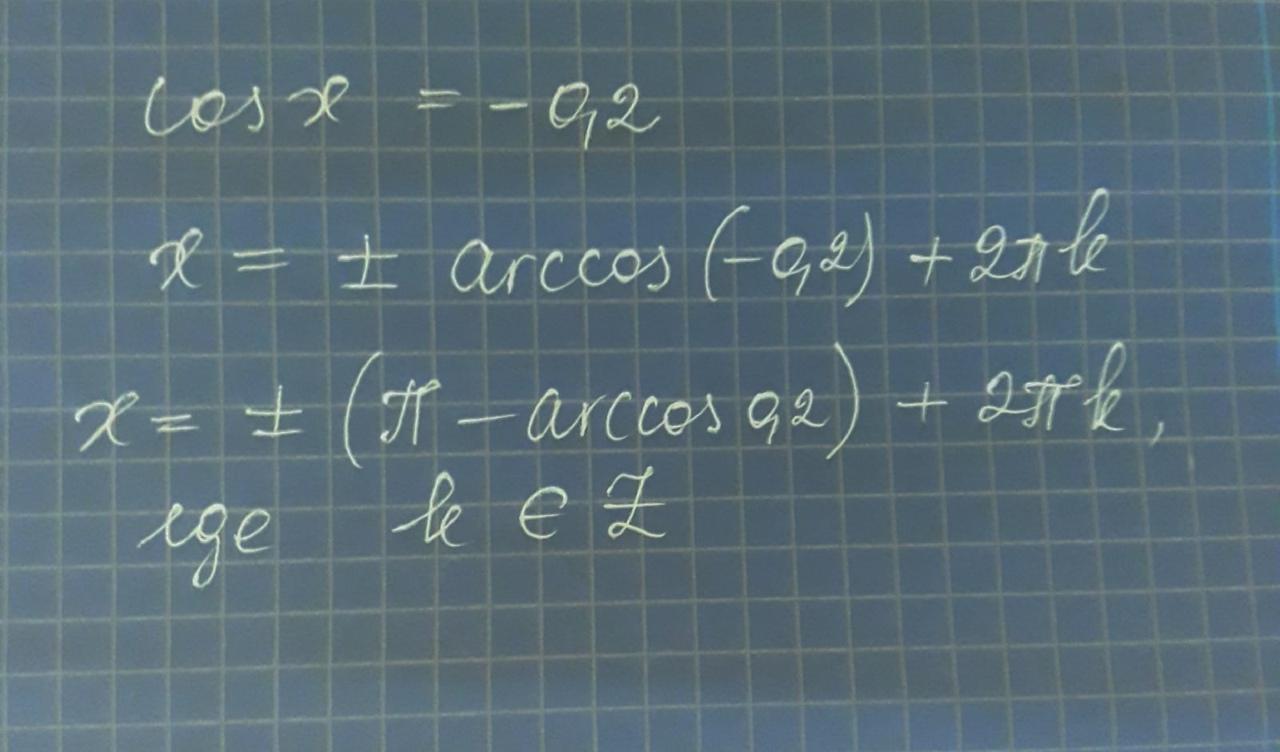 cos x = - 0,2
x = ± arccos (-0,2) + 2πk
x = ± (π - arccos 0,2) + 2πk,
где k ∈ Z